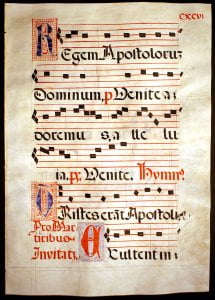 CXCVI
Regem Apostoloruz
Dominum, p Venite a
doremus, alle lu
ia, ps: Venite. Hymn9
Tristes erāt Apostoli
Pro Mar
tiribus
Invitatz
Exultent in